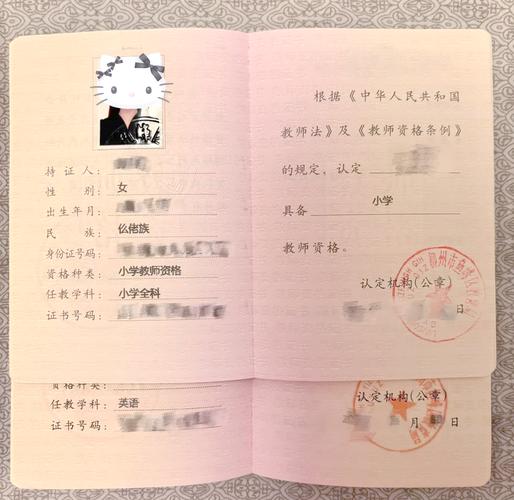 持证人：
性别：女
出生年月：
民族：仫佬族
身份证号码：
资格种类：小学教师资格
任教学科：小学全科
证书号码：
根据《中华人民共和国
教师法》及《教师资格条例》
的规定，认定
具备 小学
教师资格。
认定机构(公章)
日
资格种类：
任教学科：英语
证书号码：
认定机构(公章
月 日